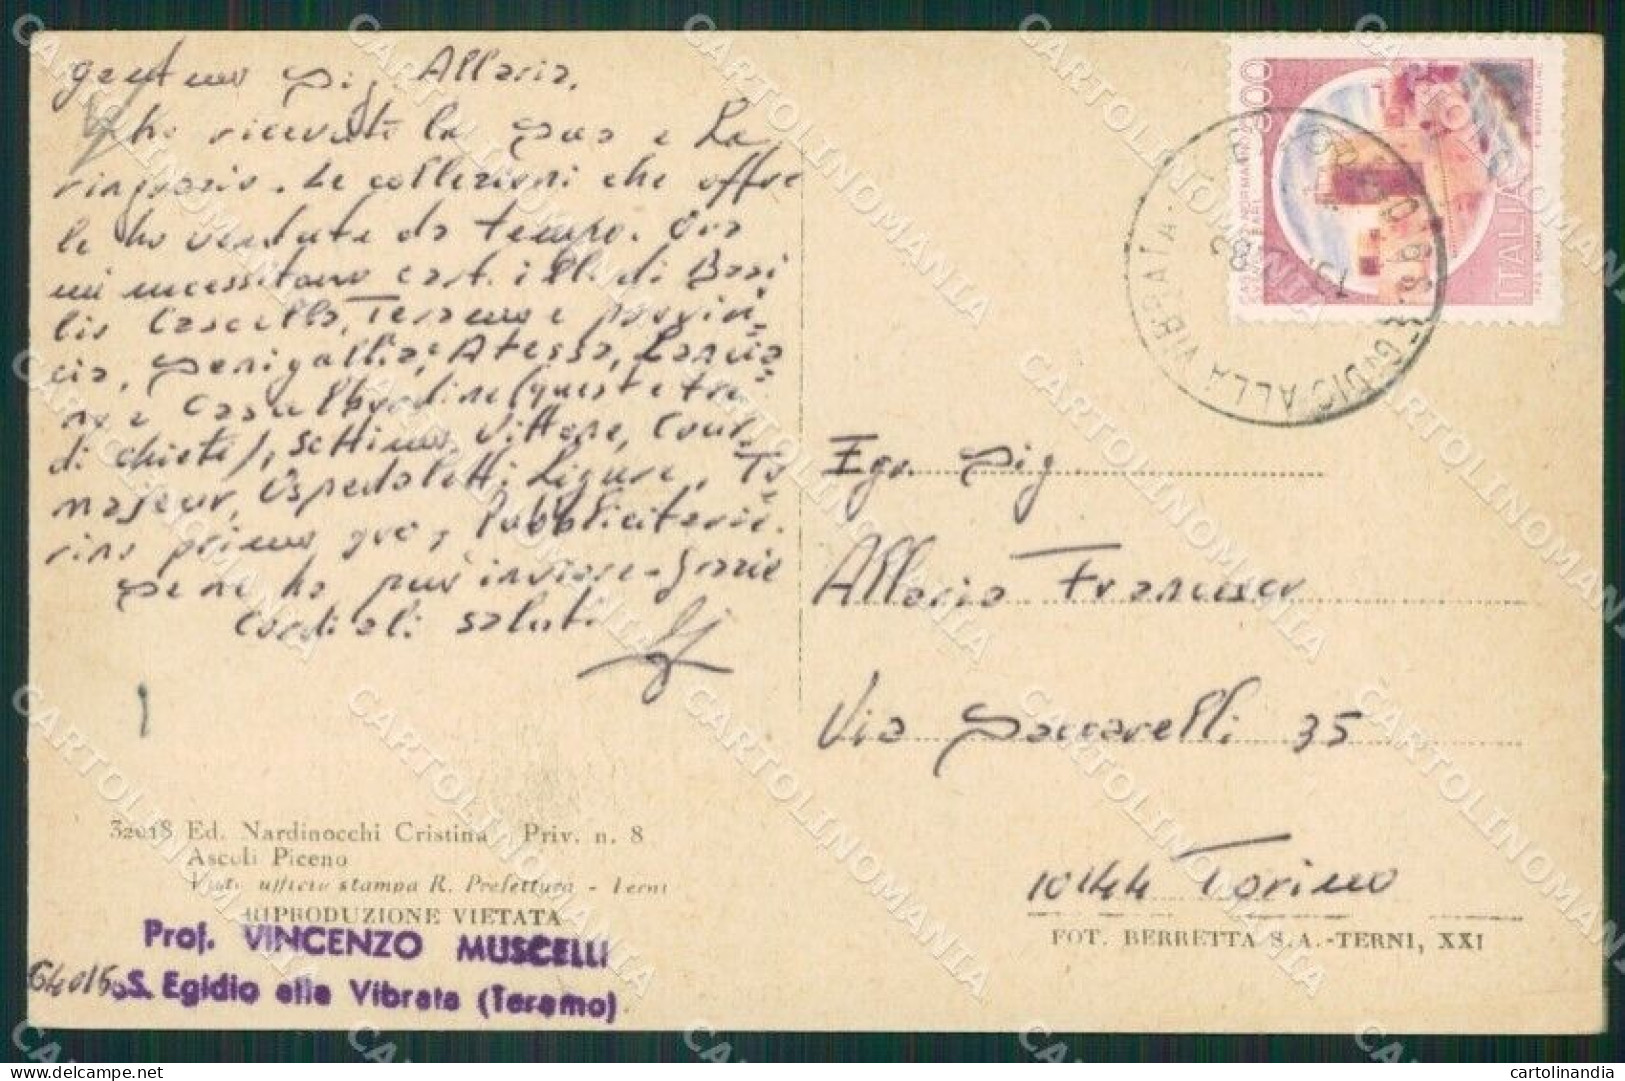 gent.mo Sig. Allaria,
ho ricevuto la sua e La
ringrazio. Le collezioni che offre
le ho vendute da tempo. Ora
mi necessitano cart. ill. di Basi
lio Cascella, Teramo e provin=
cia, Senigallia, Atessa, Lancia=
no e Casalbordino (queste tre
di Chieti), Settimo Vittone, Cour=
majeur, Ospedaletti Ligure, To=
rino primo 900, Pubblicitarie.
Se ne ha può inviare - Grazie
Cordiali saluti
32018 Ed. Nardinocchi Cristina - Priv. n. 8
Ascoli Piceno
Visto ufficio stampa R. Prefettura - Terni
RIPRODUZIONE VIETATA
Prof. VINCENZO MUSCELLI
64016 S. Egidio alla Vibrata (Teramo)
800
ITALIA
EGIDIO ALLA VIBRATA
Egr. Sig
Allaria Francesco
Via Saccarelli 35
10144 Torino
FOT. BERRETTA S.A.-TERNI, XXI
CARTOLINOMANIA
cartolinandia